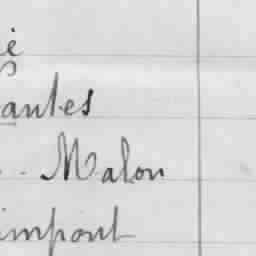 antes
Malon
impont